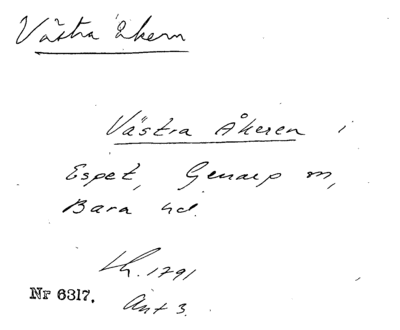 Västra åkern
Västra Åkeren i
Espet, Genarp sn,
Bara hd.
Lh. 1791
Nr 6317. Akt 3.